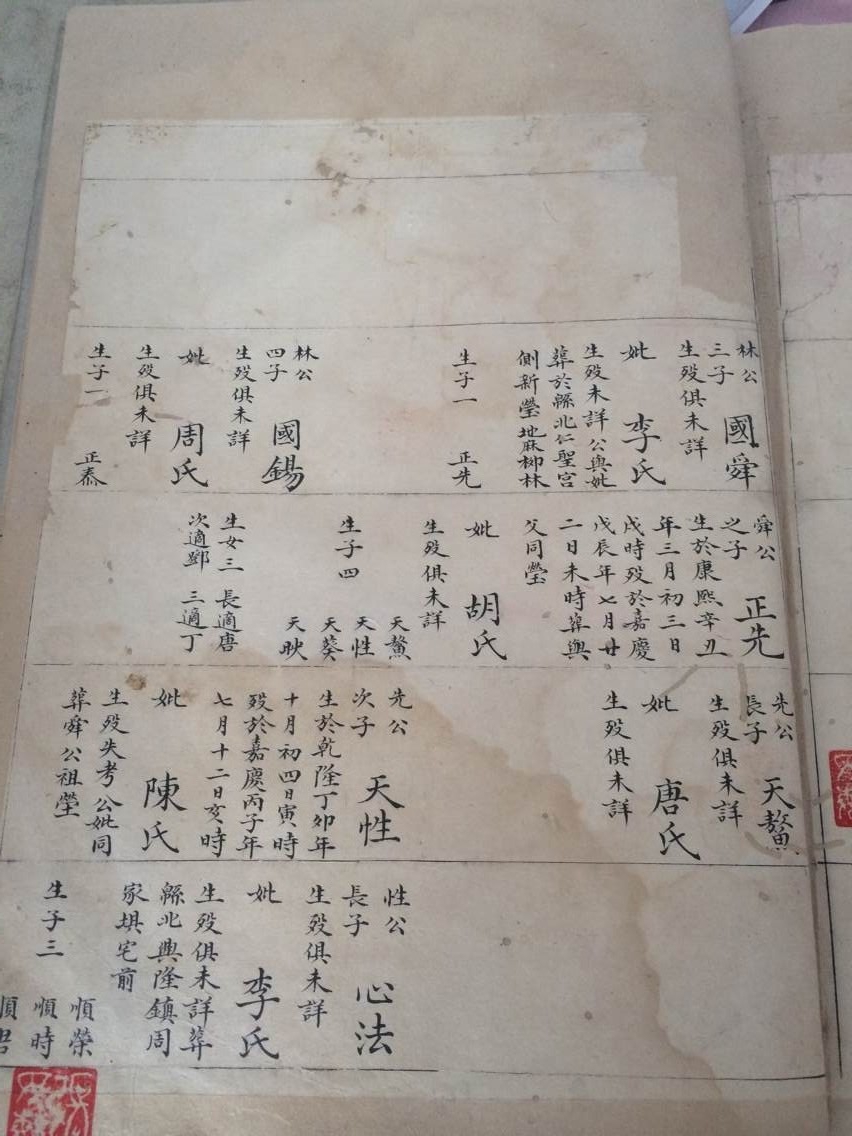 林公
三子
國舜
生殁俱未詳
妣
李氏
生殁未詳公與妣
葬於縣北仁聖宮
側新塋地麻柳林
生子一
正先
林公
四子
國錫
生殁俱未詳
妣
周氏
生殁俱未詳
生子一
正泰
舜公
之子
正先
生於康熙辛丑
年三月初三日
戌時殁於嘉慶
戊辰年七月廿
二日未時葬與
父同塋
妣
胡氏
生殁俱未詳
生子四
天鰲
天性
天葵
天映
生女三 長適唐
次適鄧 三適丁
先公
長子
天鰲
生殁俱未詳
妣
唐氏
生殁俱未詳
先公
次子
天性
生於乾隆丁卯年
十月初四日寅時
殁於嘉慶丙子年
七月十二日亥時
妣
陳氏
生殁失考公妣同
葬舜公祖塋
性公
長子
心法
生殁俱未詳
妣
李氏
生殁俱未詳葬
縣北興隆鎮周
家垻宅前
生子三
順榮
順時
順